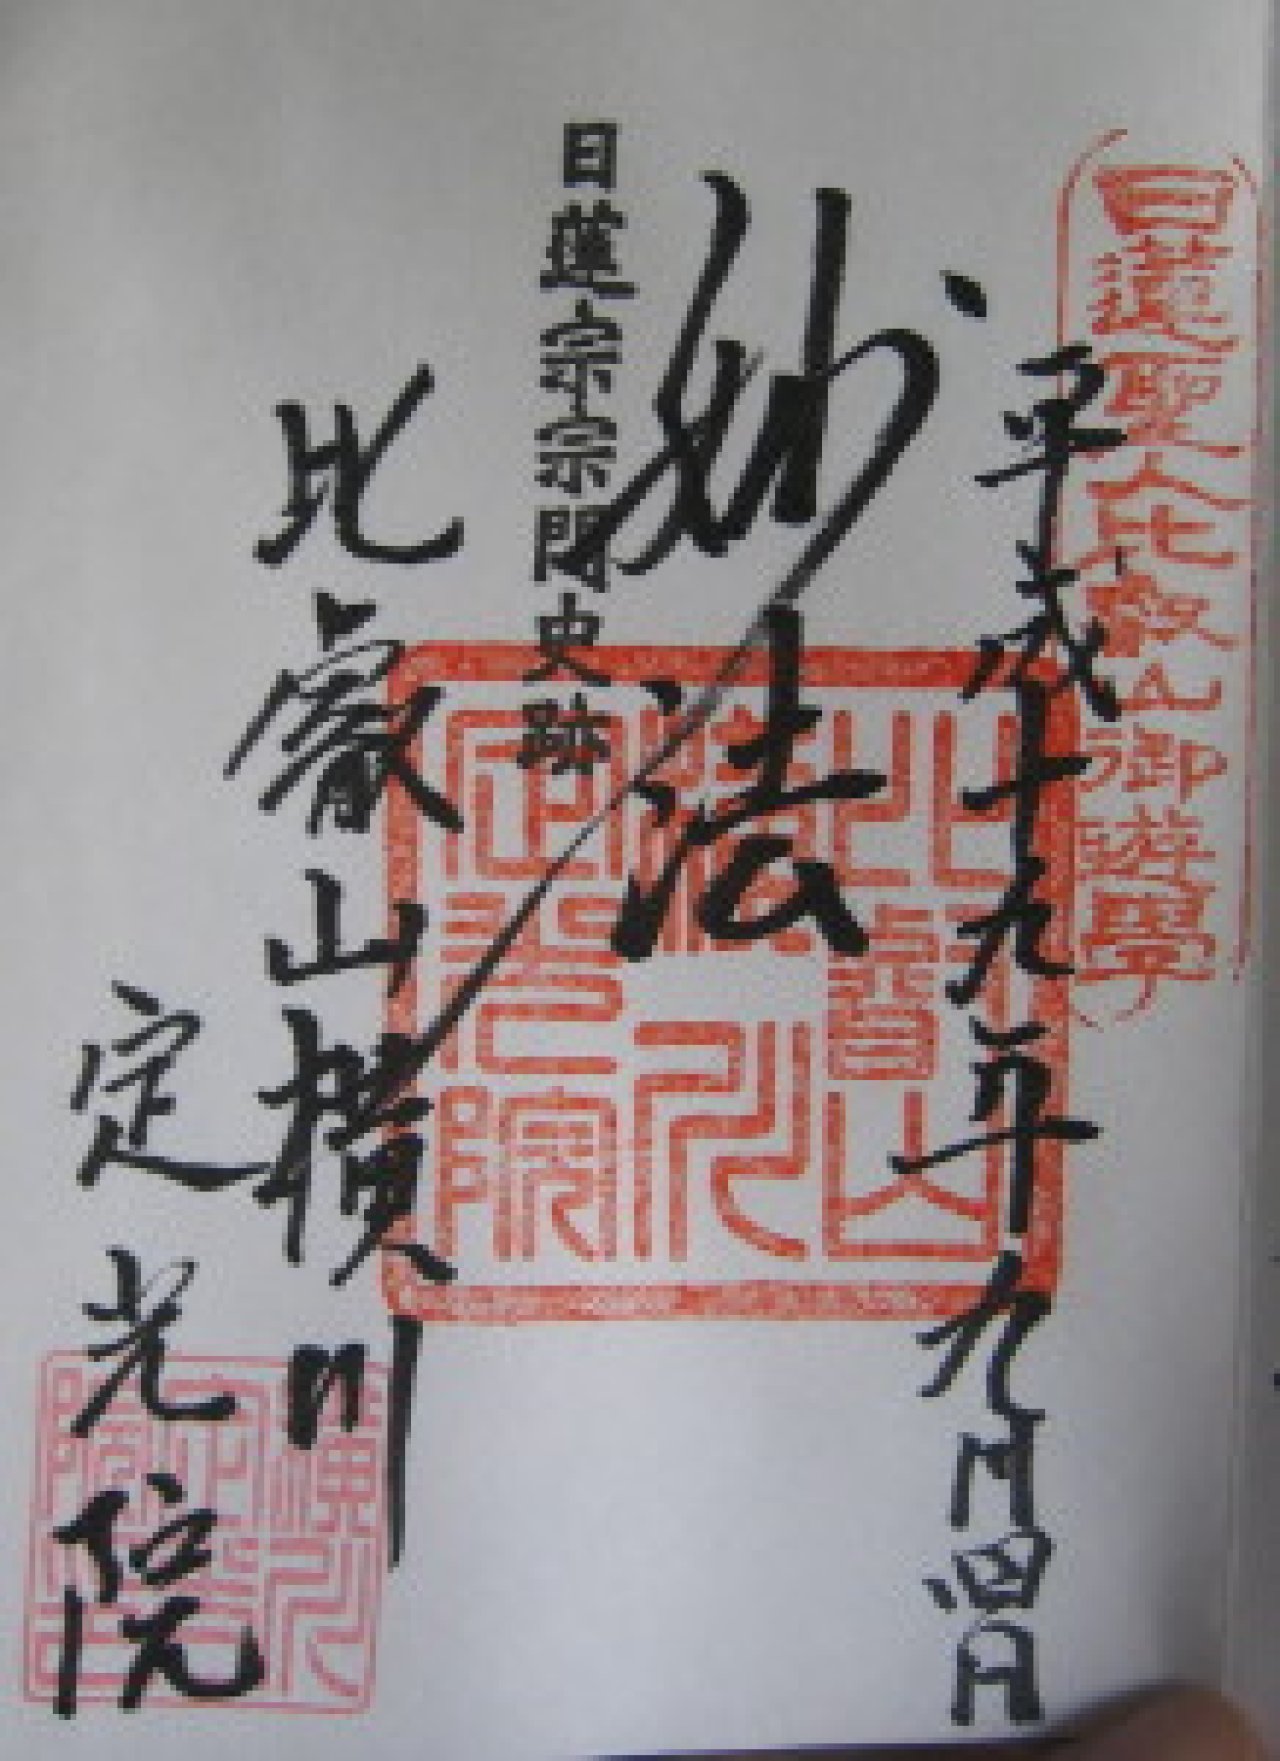 日蓮聖人比叡山御遊学
平成十九年九月四日
妙法
日蓮宗宗門史跡
比叡山横川
定光院
比叡山
横川
定光院